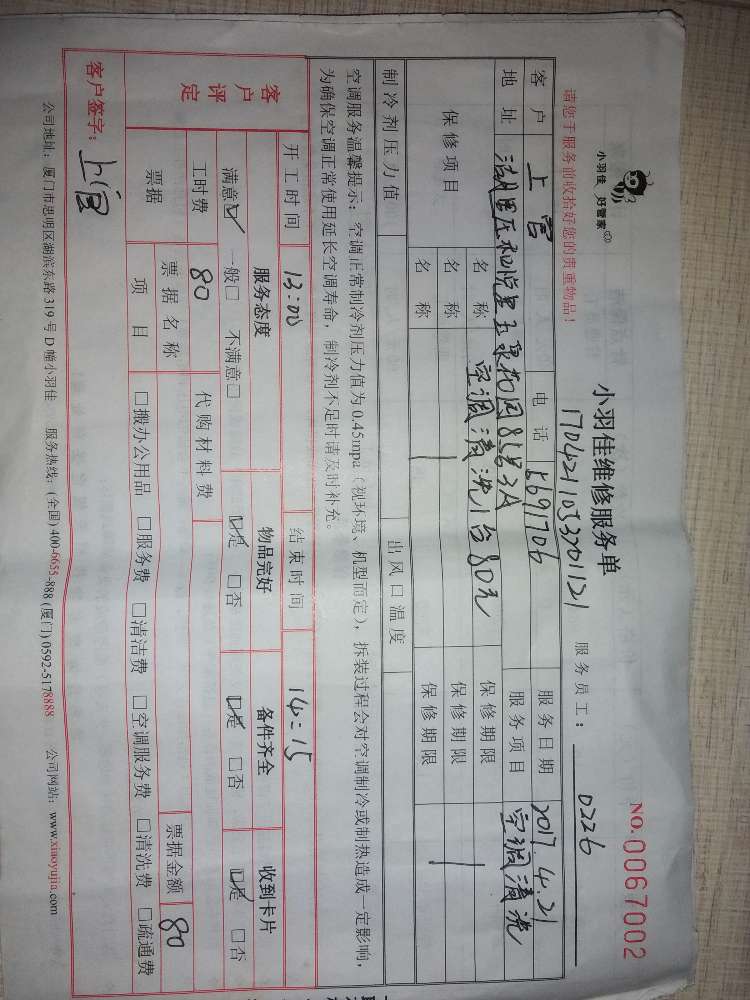 小羽佳 好管家
小羽佳维修服务单
NO.0067002
17042110533201121
请您于服务前收拾好您的贵重物品！
服务员工： 0226
客户 上官 电话 5691706 服务日期 2017.4.21
地址 湖里区和悦里玉泉花园85号3A 服务项目 空调清洗
保修项目 名称 空调清洗1台80元 保修期限
名称 保修期限
名称 保修期限
制冷剂压力值 出风口温度
空调服务温馨提示：空调正常制冷剂压力值为0.45mpa（视环境、机型而定），拆装过程会对空调制冷或制热造成一定影响，
为确保空调正常使用延长空调寿命，制冷剂不足时请及时补充。
开工时间 13:00 结束时间 14:15
客户评定 服务态度 物品完好 备件齐全 收到卡片
满意☑ 一般□ 不满意□ ☑是 □否 ☑是 □否 ☑是 □否
工时费 80 代购材料费
票据 票据名称 票据金额 80
项目 □搬办公用品 □服务费 □清洁费 □空调服务费 □清洗费 □疏通费
客户签字：上官
公司地址：厦门市思明区湖滨东路319号D幢小羽佳 服务热线：(全国)400-6655-888 (厦门)0592-5178888 公司网站：www.xiaoyujia.com